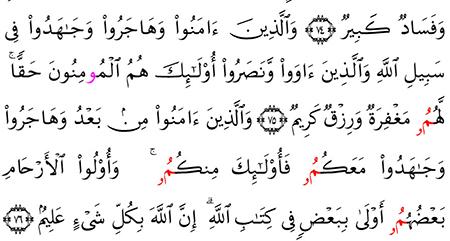 وَفَسَادٌ كَبِيرٌ ﴿٧٤﴾ وَالَّذِينَ ءَامَنُوا۟ وَهَاجَرُوا۟ وَجَٰهَدُوا۟ فِى
سَبِيلِ اللَّهِ وَالَّذِينَ ءَاوَوا۟ وَّنَصَرُوا۟ أُو۟لَٰٓئِكَ هُمُ الْمُومِنُونَ حَقًّا ۚ
لَّهُمُۥ مَغْفِرَةٌ وَرِزْقٌ كَرِيمٌ ﴿٧٥﴾ وَالَّذِينَ ءَامَنُوا۟ مِنۢ بَعْدُ وَهَاجَرُوا۟
وَجَٰهَدُوا۟ مَعَكُمُۥ فَأُو۟لَٰٓئِكَ مِنكُمُۥ ۚ وَأُو۟لُوا۟ الْأَرْحَامِ
بَعْضُهُمُۥٓ أَوْلَىٰ بِبَعْضٍ فِى كِتَٰبِ اللَّهِ ۗ إِنَّ اللَّهَ بِكُلِّ شَىْءٍ عَلِيمٌۢ ﴿٧٦﴾